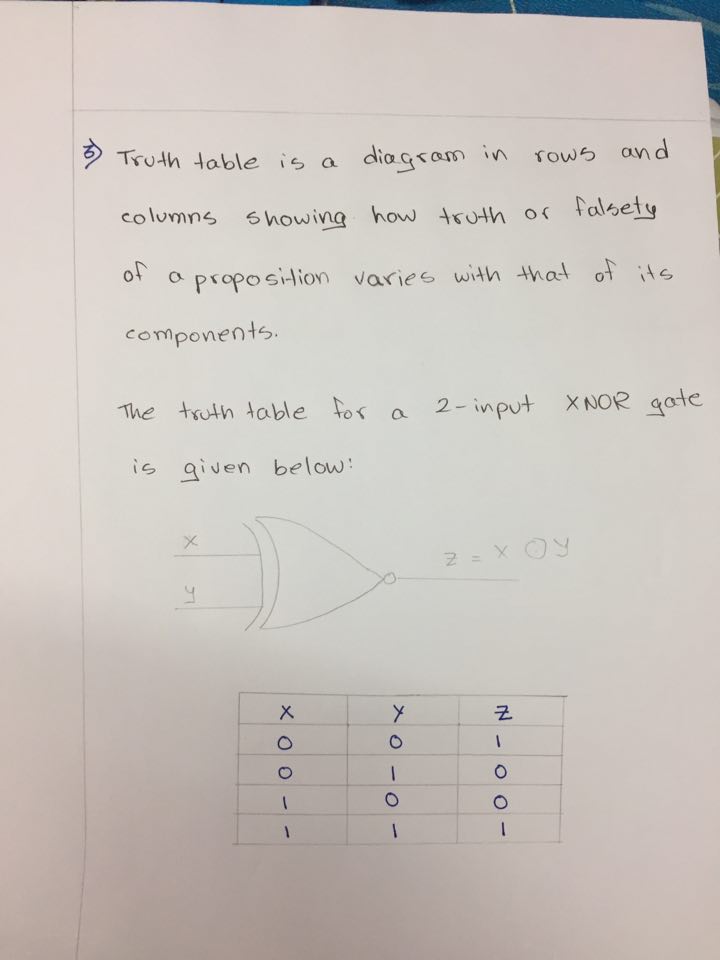 3) Truth table is a diagram in rows and
columns showing how truth or falsety
of a proposition varies with that of its
components.
The truth table for a 2-input XNOR gate
is given below:
x
y
z = x ⊙ y
X Y Z
0 0 1
0 1 0
1 0 0
1 1 1